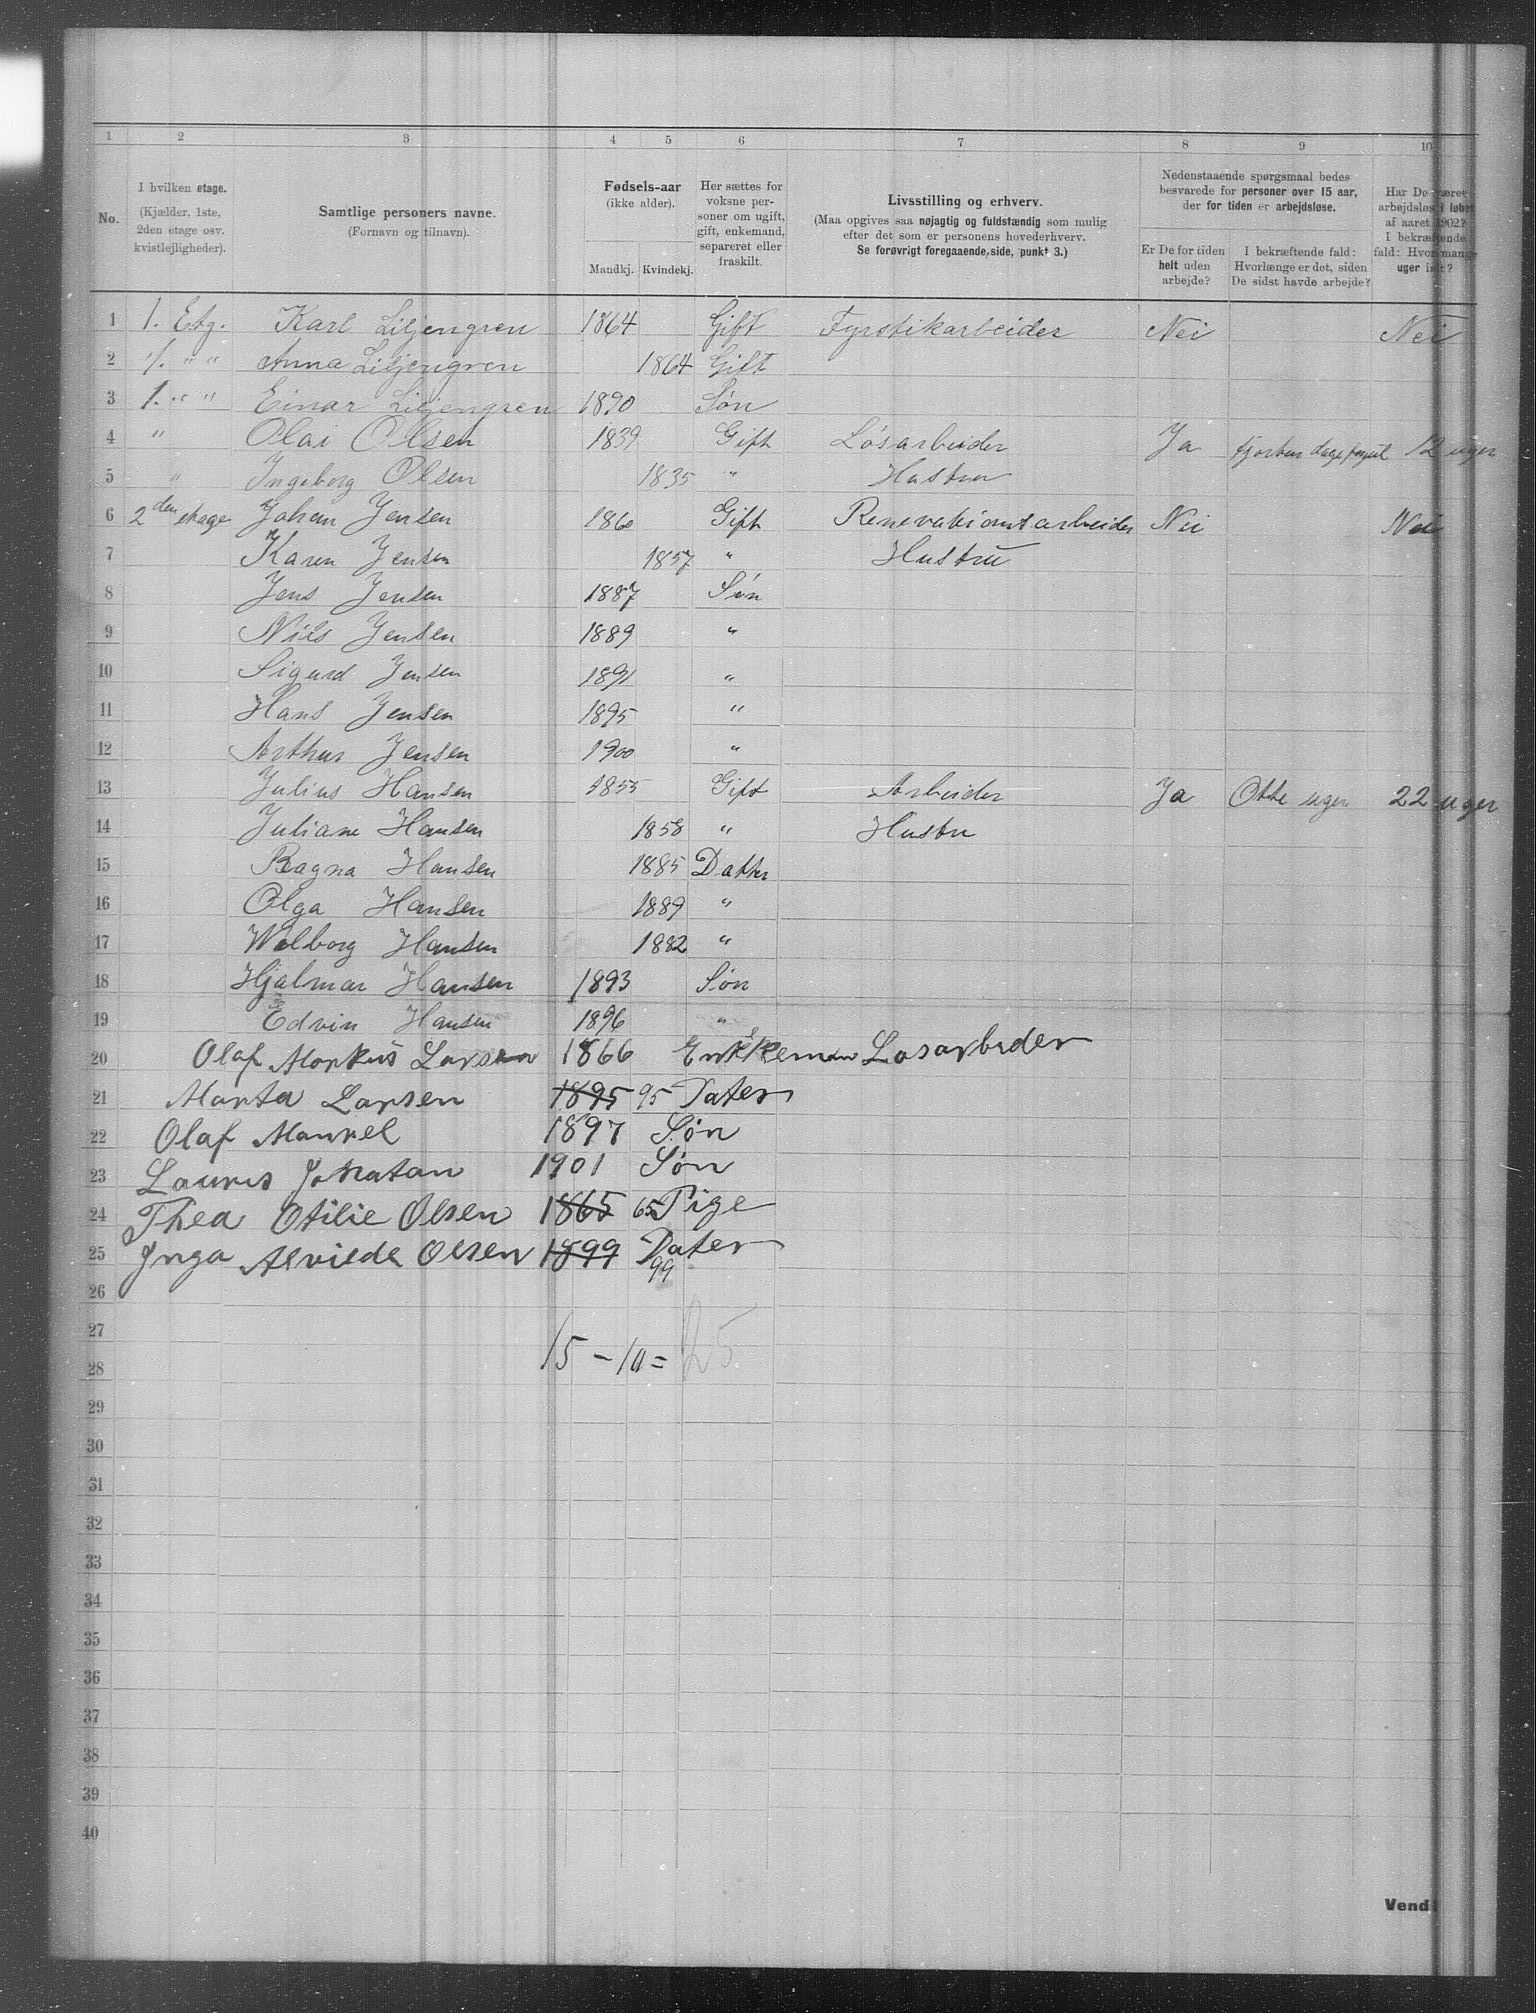 1 2 3 4 5 6 7 8 9 10
No.
I hvilken etage.
(Kjælder, 1ste,
2den etage osv.
kvistlejligheder).
Samtlige personers navne.
(Fornavn og tilnavn).
Fødsels-aar
(ikke alder).
Mandkj. Kvindekj.
Her sættes for
voksne per-
soner om ugift,
gift, enkemand,
separeret eller
fraskilt.
Livsstilling og erhverv.
(Maa opgives saa nøjagtig og fuldstændig som mulig
efter det som er personens hovederhverv.
Se forøvrigt foregaaende side, punkt 3.)
Nedenstaaende spørgsmaal bedes
besvarede for personer over 15 aar,
der for tiden er arbejdsløse.
Er De for tiden
helt uden
arbejde?
I bekræftende fald:
Hvorlænge er det, siden
De sidst havde arbejde?
Har De været
arbejdsløs i løbet
af aaret 1902?
I bekræftende
fald: Hvor mange
uger ialt?
1 1. Etg. Karl Liljengren 1864 Gift Fyrstikarbeider Nei Nei
2 1. " " Anna Liljengren 1864 Gift
3 1. " " Einar Liljengren 1890 Søn
4 " Olai Olsen 1839 Gift Løsarbeider Ja fjorten dage 12 uger
5 " Ingeborg Olsen 1835 " Hustru
6 2den etage Johan Jensen 1860 Gift Renovationsarbeider Nei Nei
7 Karen Jensen 1857 " Hustru
8 Jens Jensen 1887 Søn
9 Nils Jensen 1889 "
10 Sigurd Jensen 1891 "
11 Hans Jensen 1895 "
12 Arthur Jensen 1900 "
13 Julius Hansen 1855 Gift Arbeider Ja Otte uger 22 uger
14 Juliane Hansen 1858 " Hustru
15 Ragna Hansen 1885 Datter
16 Olga Hansen 1889 "
17 Wolborg Hansen 1882 "
18 Hjalmar Hansen 1893 Søn
19 Edvin Hansen 1896 "
20 Olaf Morkus Larsen 1866 Enkkeman Løsarbeder
21 Marta Larsen 1895 95 Dater
22 Olaf Manvel 1897 Søn
23 Laures Jonatan 1901 Søn
24 Thea Otilie Olsen 1865 65 Pige
25 Inga Alvilde Olsen 1899 Dater
99
26
27
15 - 10 = 25
28
29
30
31
32
33
34
35
36
37
38
39
40
Vend!